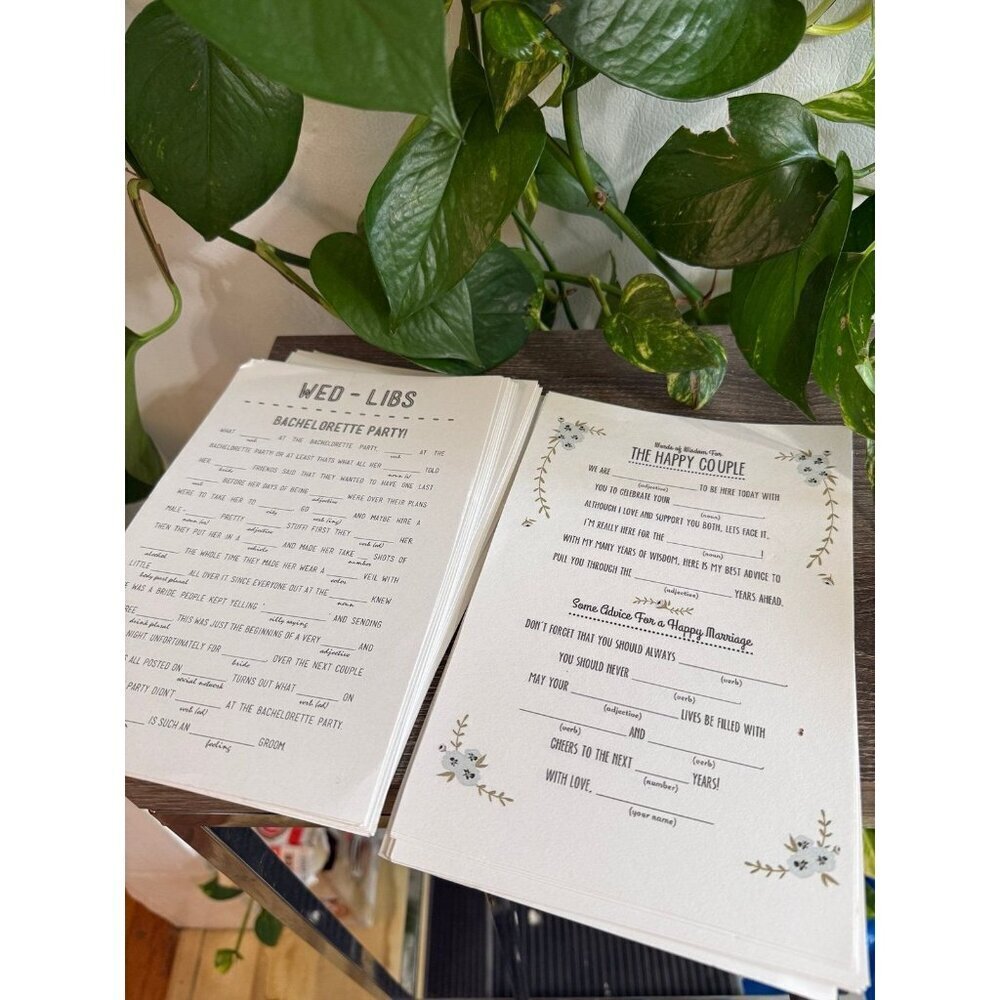 WED - LIBS
BACHELORETTE PARTY!
WHAT ____ AT THE BACHELORETTE PARTY, ____ AT THE
verb verb
BACHELORETTE PARTY! OR AT LEAST THATS WHAT ALL HER ____ TOLD
noun (s)
HER ____. FRIENDS SAID THAT THEY WANTED TO HAVE ONE LAST
bride
____ BEFORE HER DAYS OF BEING ____ WERE OVER THEIR PLANS
verb adjective
WERE TO TAKE HER TO ____, GO ____ AND MAYBE HIRE A
city verb (ing)
MALE - ____ PRETTY ____ STUFF! FIRST THEY ____ HER.
noun (er) adjective verb (ed)
THEN THEY PUT HER IN A ____ AND MADE HER TAKE ____ SHOTS OF
vehicle number
____ THE WHOLE TIME THEY MADE HER WEAR A ____ VEIL WITH
alcohol color
LITTLE ____ ALL OVER IT SINCE EVERYONE OUT AT THE ____ KNEW
body part plural noun
E WAS A BRIDE, PEOPLE KEPT YELLING "____" AND SENDING
silly saying
REE ____. THIS WAS JUST THE BEGINNING OF A VERY ____ AND
drink plural adjective
NIGHT UNFORTUNATELY FOR ____, OVER THE NEXT COUPLE
bride
ALL POSTED ON ____ TURNS OUT WHAT ____ ON
social network verb (ed)
PARTY DIDN'T ____ AT THE BACHELORETTE PARTY.
verb (ed)
____ IS SUCH AN ____ GROOM
feeling
Words of Wisdom For
THE HAPPY COUPLE
WE ARE ____ TO BE HERE TODAY WITH
(adjective)
YOU TO CELEBRATE YOUR ____.
(noun)
ALTHOUGH I LOVE AND SUPPORT YOU BOTH, LETS FACE IT,
I'M REALLY HERE FOR THE ____!
(noun)
WITH MY MANY YEARS OF WISDOM, HERE IS MY BEST ADVICE TO
PULL YOU THROUGH THE ____ YEARS AHEAD.
(adjective)
Some Advice For a Happy Marriage
DON'T FORGET THAT YOU SHOULD ALWAYS ____.
(verb)
YOU SHOULD NEVER ____.
(verb)
MAY YOUR ____ LIVES BE FILLED WITH
(adjective)
____ AND ____.
(verb) (verb)
CHEERS TO THE NEXT ____ YEARS!
(number)
WITH LOVE, ____
(your name)